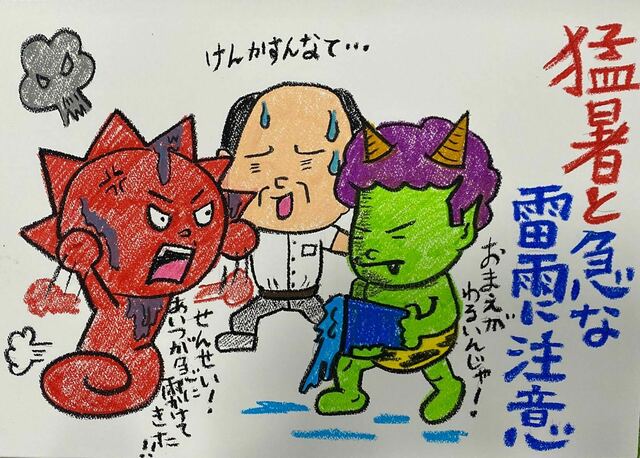 猛暑と
急な
雷雨に注意
けんかすんなて…
おまえが
わるいんじゃ!
せんせい!
あいつが急に
雨かけて
きた!!